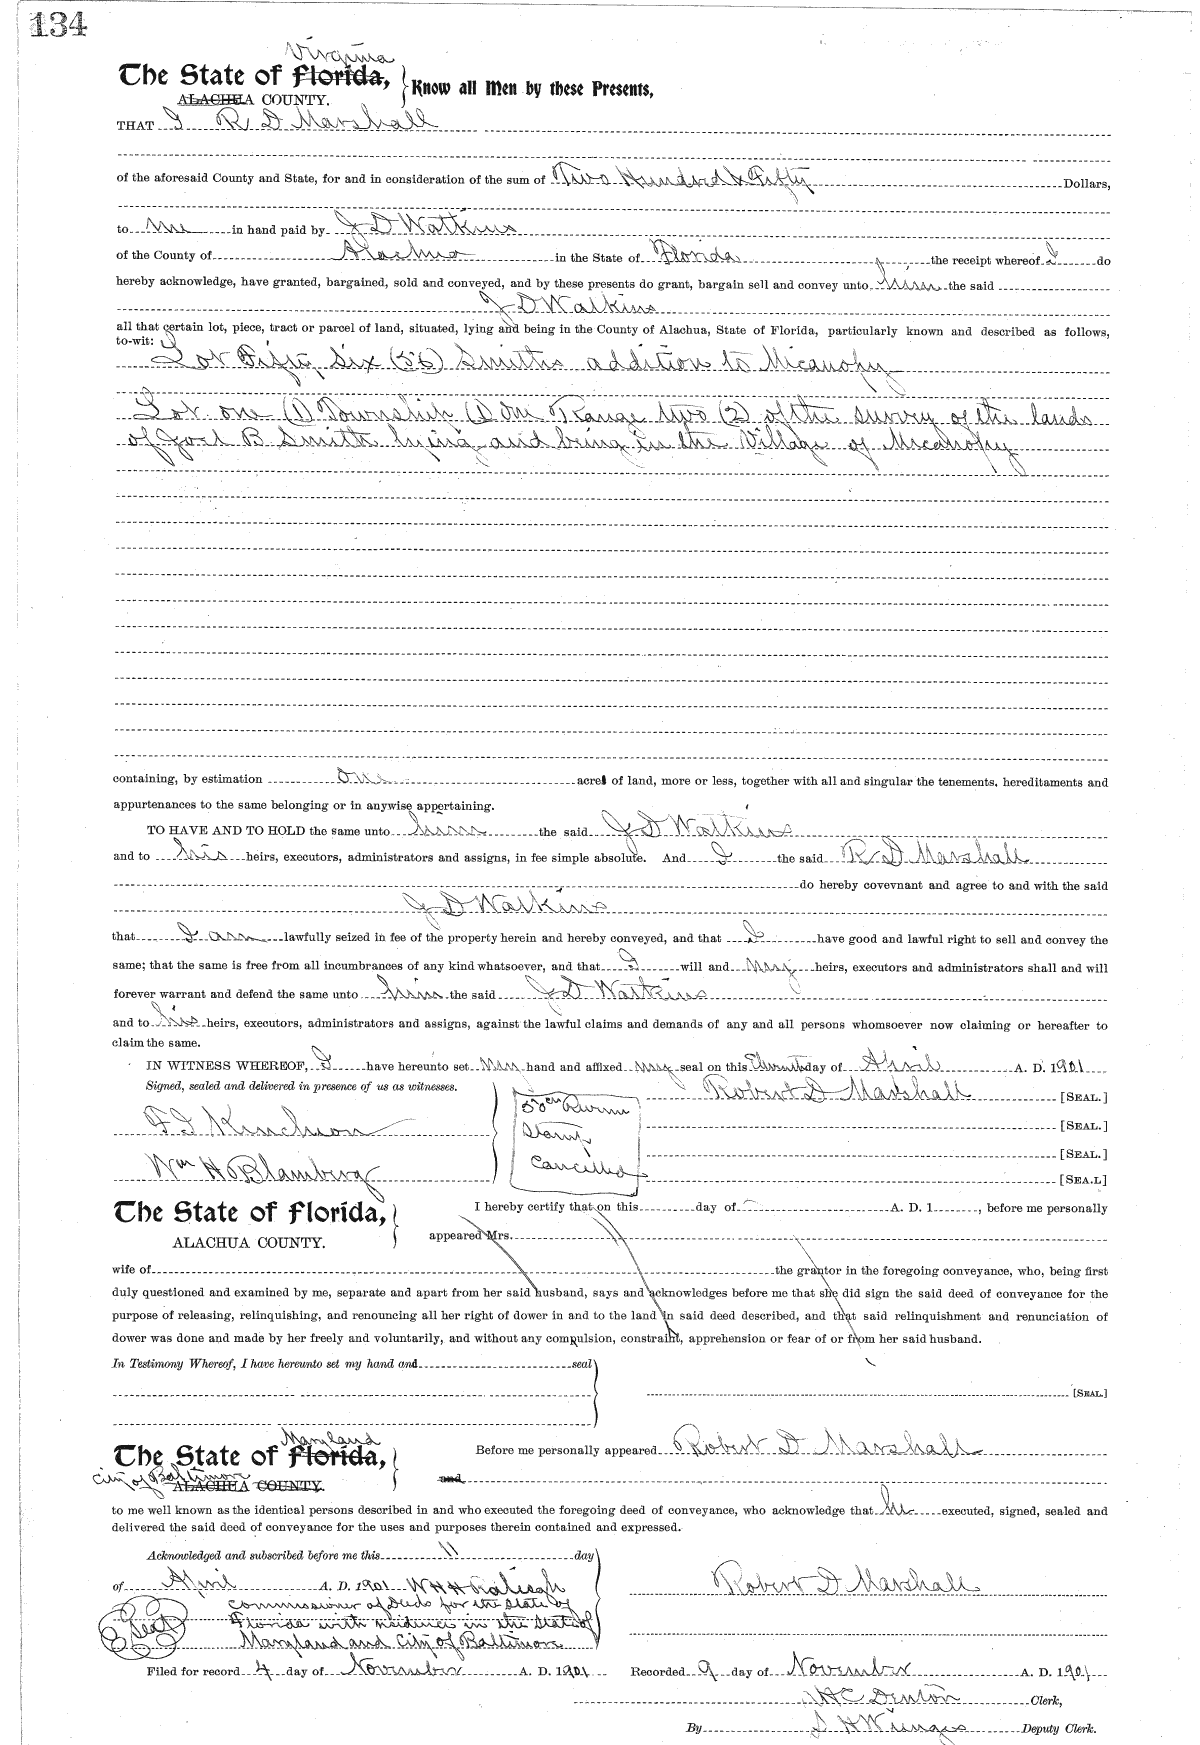 134
Virginia
The State of Florida, } Know all Men by these Presents,
ALACHUA COUNTY.
THAT I R D Marshall
of the aforesaid County and State, for and in consideration of the sum of Two Hundred & Fifty Dollars,
to me in hand paid by J D Watkins
of the County of Alachua in the State of Florida, the receipt whereof I do
hereby acknowledge, have granted, bargained, sold and conveyed, and by these presents do grant, bargain sell and convey unto him the said
J D Watkins
all that certain lot, piece, tract or parcel of land, situated, lying and being in the County of Alachua, State of Florida, particularly known and described as follows,
to-wit:
Lot Fifty Six (56) Smiths addition to Micanopy
Lot one (1) Township (1) on Range two (2) of the survey of the lands
of Joel B Smith lying and being in the Village of Micanopy
containing, by estimation one acre of land, more or less, together with all and singular the tenements, hereditaments and
appurtenances to the same belonging or in anywise appertaining.
TO HAVE AND TO HOLD the same unto him the said J D Watkins
and to his heirs, executors, administrators and assigns, in fee simple absolute. And I the said R D Marshall
do hereby covevnant and agree to and with the said
J D Watkins
that I am lawfully seized in fee of the property herein and hereby conveyed, and that I have good and lawful right to sell and convey the
same; that the same is free from all incumbrances of any kind whatsoever, and that I will and my heirs, executors and administrators shall and will
forever warrant and defend the same unto him the said J D Watkins
and to his heirs, executors, administrators and assigns, against the lawful claims and demands of any and all persons whomsoever now claiming or hereafter to
claim the same.
IN WITNESS WHEREOF, I have hereunto set my hand and affixed my seal on this day of April A. D. 1901
Signed, sealed and delivered in presence of us as witnesses.
Robert D Marshall [SEAL.]
50 cen Revenu
Stamp
Cancelled
[SEAL.]
[SEAL.]
[SEA.L]
Wm H Blamberg
The State of Florida,
ALACHUA COUNTY.
I hereby certify that on this day of A. D. 1 , before me personally
appeared Mrs.
wife of the grantor in the foregoing conveyance, who, being first
duly questioned and examined by me, separate and apart from her said husband, says and acknowledges before me that she did sign the said deed of conveyance for the
purpose of releasing, relinquishing, and renouncing all her right of dower in and to the land in said deed described, and that said relinquishment and renunciation of
dower was done and made by her freely and voluntarily, and without any compulsion, constraint, apprehension or fear of or from her said husband.
In Testimony Whereof, I have hereunto set my hand and seal
[SEAL.]
Maryland
The State of Florida,
City of Baltimore
ALACHUA COUNTY.
Before me personally appeared Robert D Marshall
and
to me well known as the identical persons described in and who executed the foregoing deed of conveyance, who acknowledge that he executed, signed, sealed and
delivered the said deed of conveyance for the uses and purposes therein contained and expressed.
Acknowledged and subscribed before me this 11 day
of April A. D. 1901 W H H Raleigh
Robert D Marshall
Commissioner of Deeds for the State of
Seal Florida with residence in the State of
Maryland and City of Baltimore
Filed for record 4 day of November A. D. 1901 Recorded 9 day of November A. D. 1901
H C Denton Clerk,
By S H Wienges Deputy Clerk.